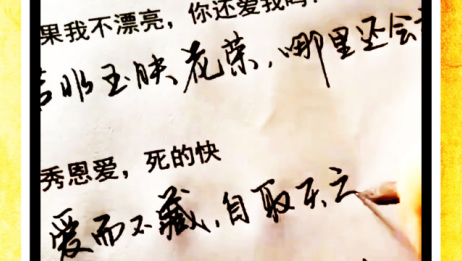 果我不漂亮，你还爱我吗？
非玉花荣，哪里还会
秀恩爱，死的快
爱而不藏，自取灭